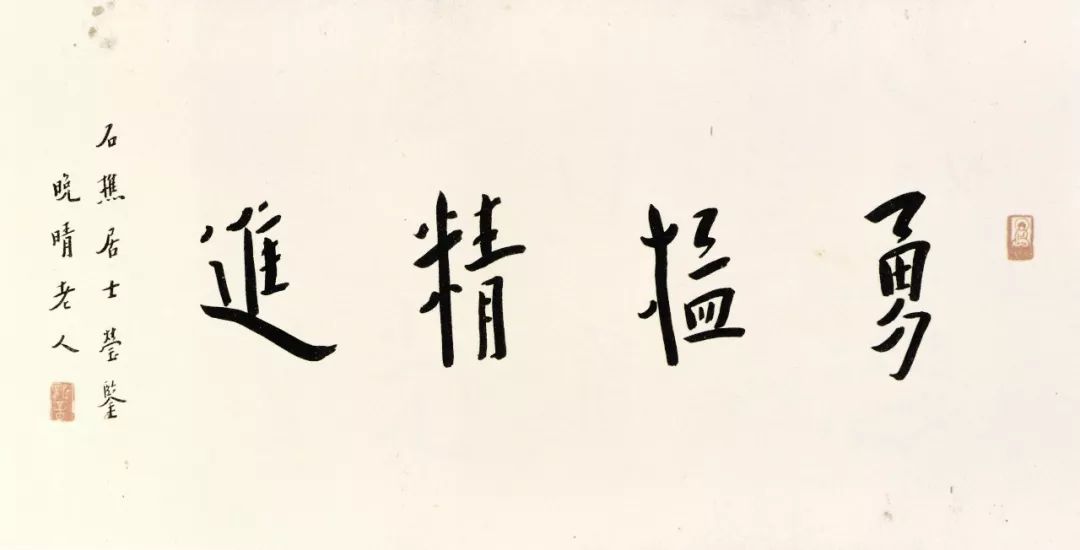 勇猛精進
石樵居士瑩鑒
晚晴老人